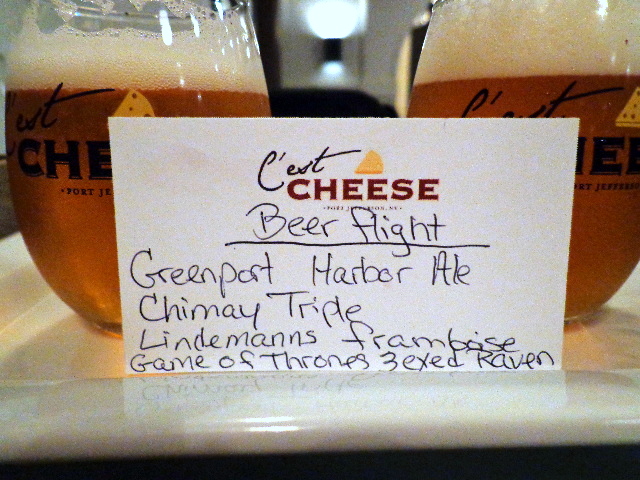 C'est
CHEESE
· PORT JEFFERSON, NY ·
Beer flight
Greenport Harbor Ale
Chimay Triple
Lindemanns framboise
Game of Thrones 3eyed Raven
C'est
CHEE
· PORT JE
C'est
EE
PORT JEFFERS